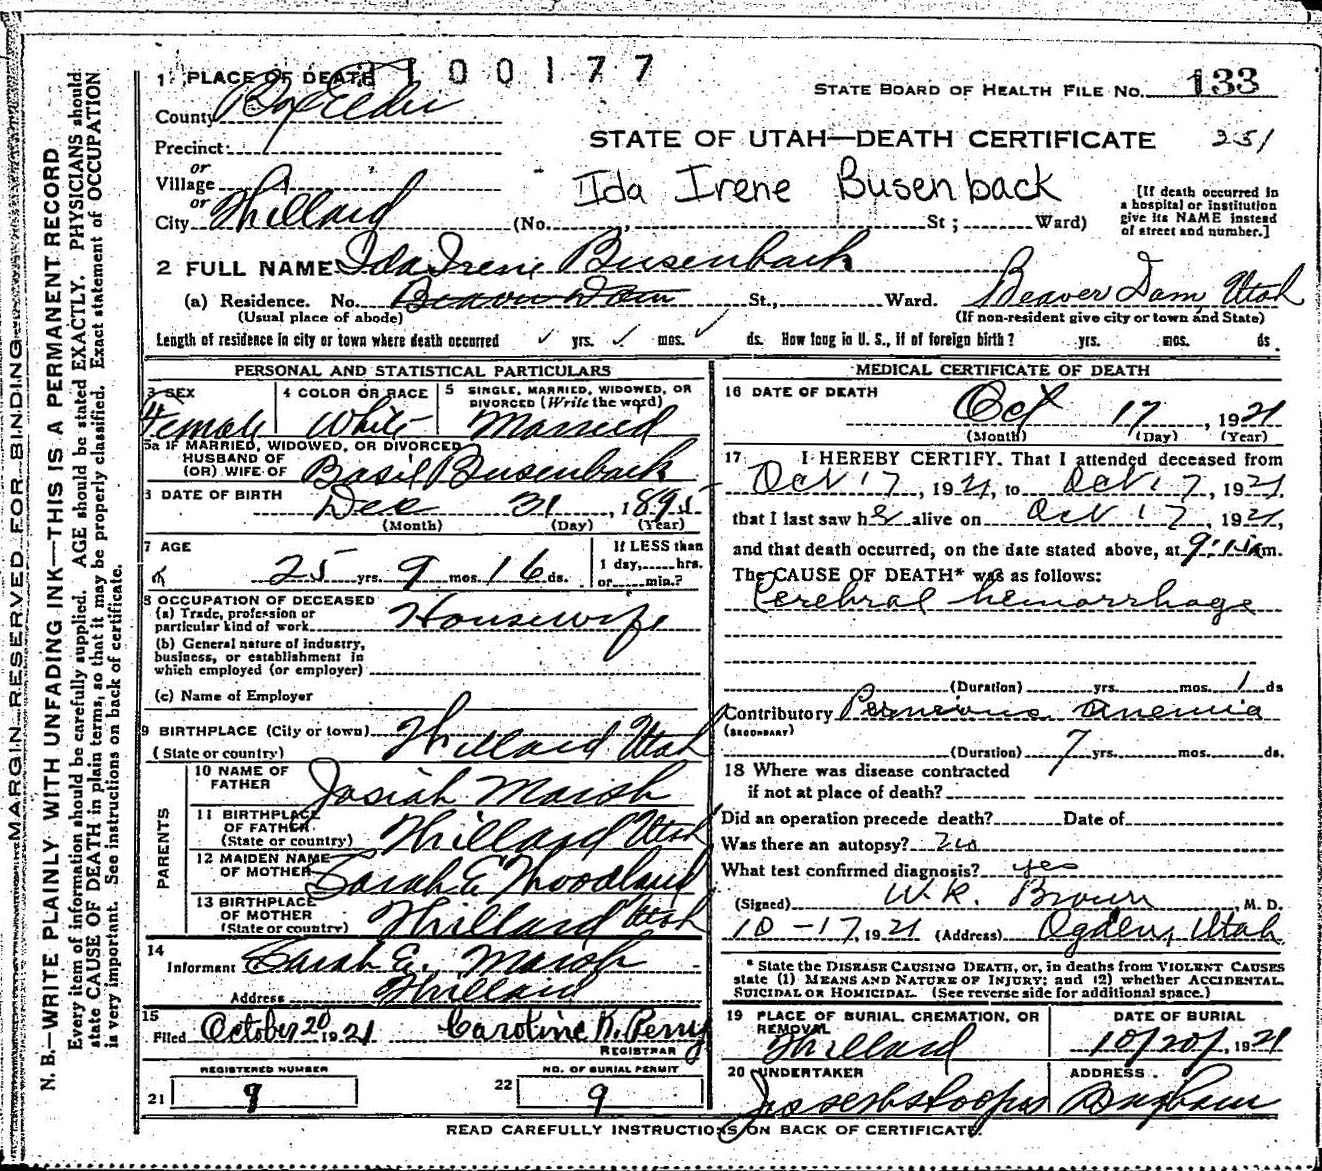 MARGIN RESERVED FOR BINDING
N. B.—WRITE PLAINLY WITH UNFADING INK—THIS IS A PERMANENT RECORD
Every item of information should be carefully supplied. AGE should be stated EXACTLY. PHYSICIANS should
state CAUSE OF DEATH in plain terms, so that it may be properly classified. Exact statement of OCCUPATION
is very important. See instructions on back of certificate.
2100177
1 PLACE OF DEATH
County Box Elder
Precinct
or
Village
or
City Willard
STATE BOARD OF HEALTH FILE No. 133
STATE OF UTAH—DEATH CERTIFICATE 251
Ida Irene Busenback
(No. St; Ward)
[If death occurred in
a hospital or institution
give its NAME instead
of street and number.]
2 FULL NAME Ida Irene Busenback
(a) Residence. No. Beaver Dam St., Ward. Beaver Dam, Utah
(Usual place of abode) (If non-resident give city or town and State)
Length of residence in city or town where death occurred yrs. mos. ds. How long in U. S., if of foreign birth? yrs. mos. ds.
PERSONAL AND STATISTICAL PARTICULARS
3 SEX
Female
4 COLOR OR RACE
White
5 SINGLE, MARRIED, WIDOWED, OR
DIVORCED (Write the word)
Married
5a IF MARRIED, WIDOWED, OR DIVORCED
HUSBAND OF
(OR) WIFE OF Basil Busenback
6 DATE OF BIRTH
Dec 31, 1895
(Month) (Day) (Year)
7 AGE
25 yrs. 9 mos. 16 ds.
If LESS than
1 day, hrs.
or min.?
8 OCCUPATION OF DECEASED
(a) Trade, profession or
particular kind of work Housewife
(b) General nature of industry,
business, or establishment in
which employed (or employer)
(c) Name of Employer
9 BIRTHPLACE (City or town)
(State or country) Willard Utah
PARENTS
10 NAME OF
FATHER Josiah Marsh
11 BIRTHPLACE
OF FATHER
(State or country) Willard Utah
12 MAIDEN NAME
OF MOTHER Sarah E Woodland
13 BIRTHPLACE
OF MOTHER
(State or country) Willard Utah
14
Informant Sarah E. Marsh
Address Willard
15
Filed October 20 1921 Caroline K. Perry
REGISTRAR
REGISTERED NUMBER
21 9
NO. OF BURIAL PERMIT
22 9
MEDICAL CERTIFICATE OF DEATH
16 DATE OF DEATH
Oct 17, 1921
(Month) (Day) (Year)
17 I HEREBY CERTIFY. That I attended deceased from
Oct 17, 1921, to Oct 17, 1921
that I last saw her alive on Oct 17, 1921,
and that death occurred, on the date stated above, at 9: m.
The CAUSE OF DEATH* was as follows:
Cerebral hemorrhage
(Duration) yrs. mos. 1 ds
Contributory Pernicious anemia
(SECONDARY)
(Duration) 7 yrs. mos. ds.
18 Where was disease contracted
if not at place of death?
Did an operation precede death? Date of
Was there an autopsy? No
What test confirmed diagnosis? yes
(Signed) W. R. Brown, M. D.
10-17, 1921 (Address) Ogden, Utah
* State the DISEASE CAUSING DEATH, or, in deaths from VIOLENT CAUSES
state (1) MEANS AND NATURE OF INJURY; and (2) whether ACCIDENTAL,
SUICIDAL OR HOMICIDAL. (See reverse side for additional space.)
19 PLACE OF BURIAL, CREMATION, OR
REMOVAL
Willard
DATE OF BURIAL
10/20/, 1921
20 UNDERTAKER
ADDRESS
READ CAREFULLY INSTRUCTIONS ON BACK OF CERTIFICATE.